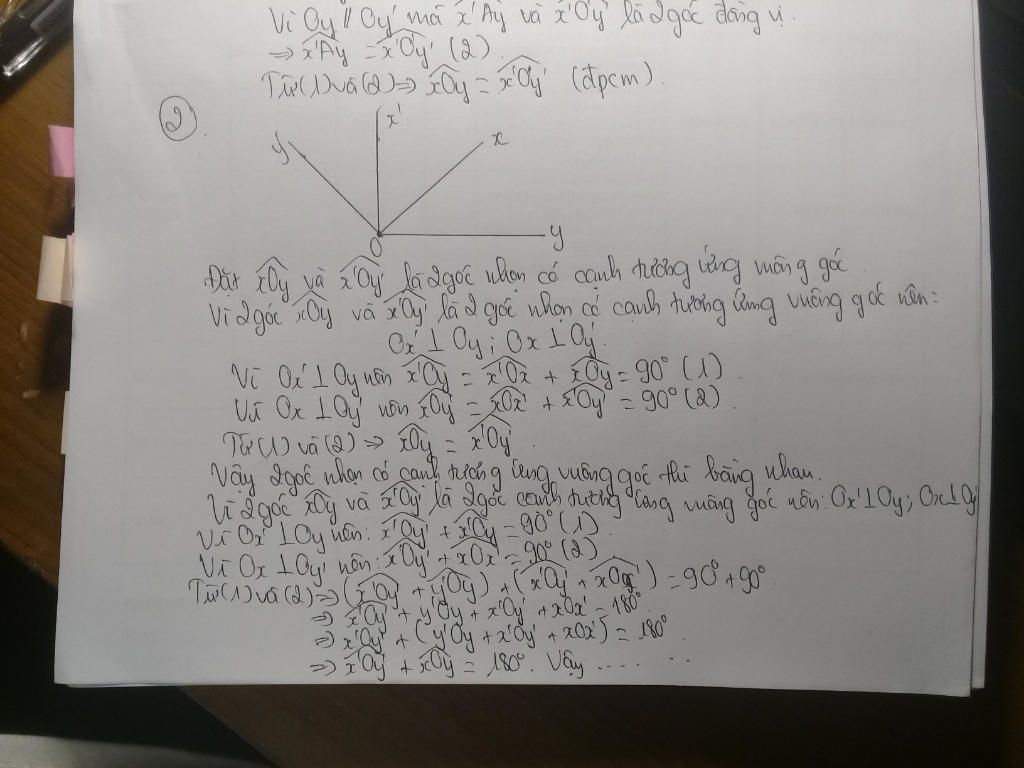 Vì Oy // Oy' mà x'Ay và x'Oy' là 2 góc đồng vị.
⇒ x'Ay = x'Oy' (2)
Từ (1) và (2) ⇒ xOy = x'Oy' (đpcm).
2.
x'
y'
x
y
O
Đặt xOy và x'Oy' là 2 góc nhọn có cạnh tương ứng vuông góc
Vì 2 góc xOy và x'Oy' là 2 góc nhọn có cạnh tương ứng vuông góc nên:
Ox' ⊥ Oy; Ox ⊥ Oy'.
Vì Ox' ⊥ Oy nên x'Oy = x'Ox + xOy = 90° (1)
Vì Ox ⊥ Oy' nên xOy' = xOx' + x'Oy' = 90° (2)
Từ (1) và (2) ⇒ xOy = x'Oy'.
Vậy 2 góc nhọn có cạnh tương ứng vuông góc thì bằng nhau.
Vì 2 góc xOy và x'Oy' là 2 góc cạnh tương ứng vuông góc nên: Ox' ⊥ Oy; Ox ⊥ Oy'
Vì Ox' ⊥ Oy nên: x'Oy' + xOy = 90° (1)
Vì Ox ⊥ Oy' nên: x'Oy' + xOx' = 90° (2)
Từ (1) và (2) ⇒ (x'Oy' + y'Oy) + (x'Oy' + xOx') = 90° + 90°
⇒ x'Oy' + y'Oy + x'Oy' + xOx' = 180°
⇒ x'Oy' + (y'Oy + x'Oy' + xOx') = 180°
⇒ x'Oy' + xOy = 180°. Vậy .... ..